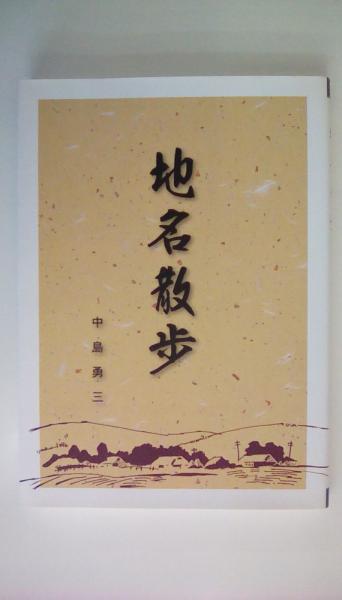 地名散歩
中島勇三